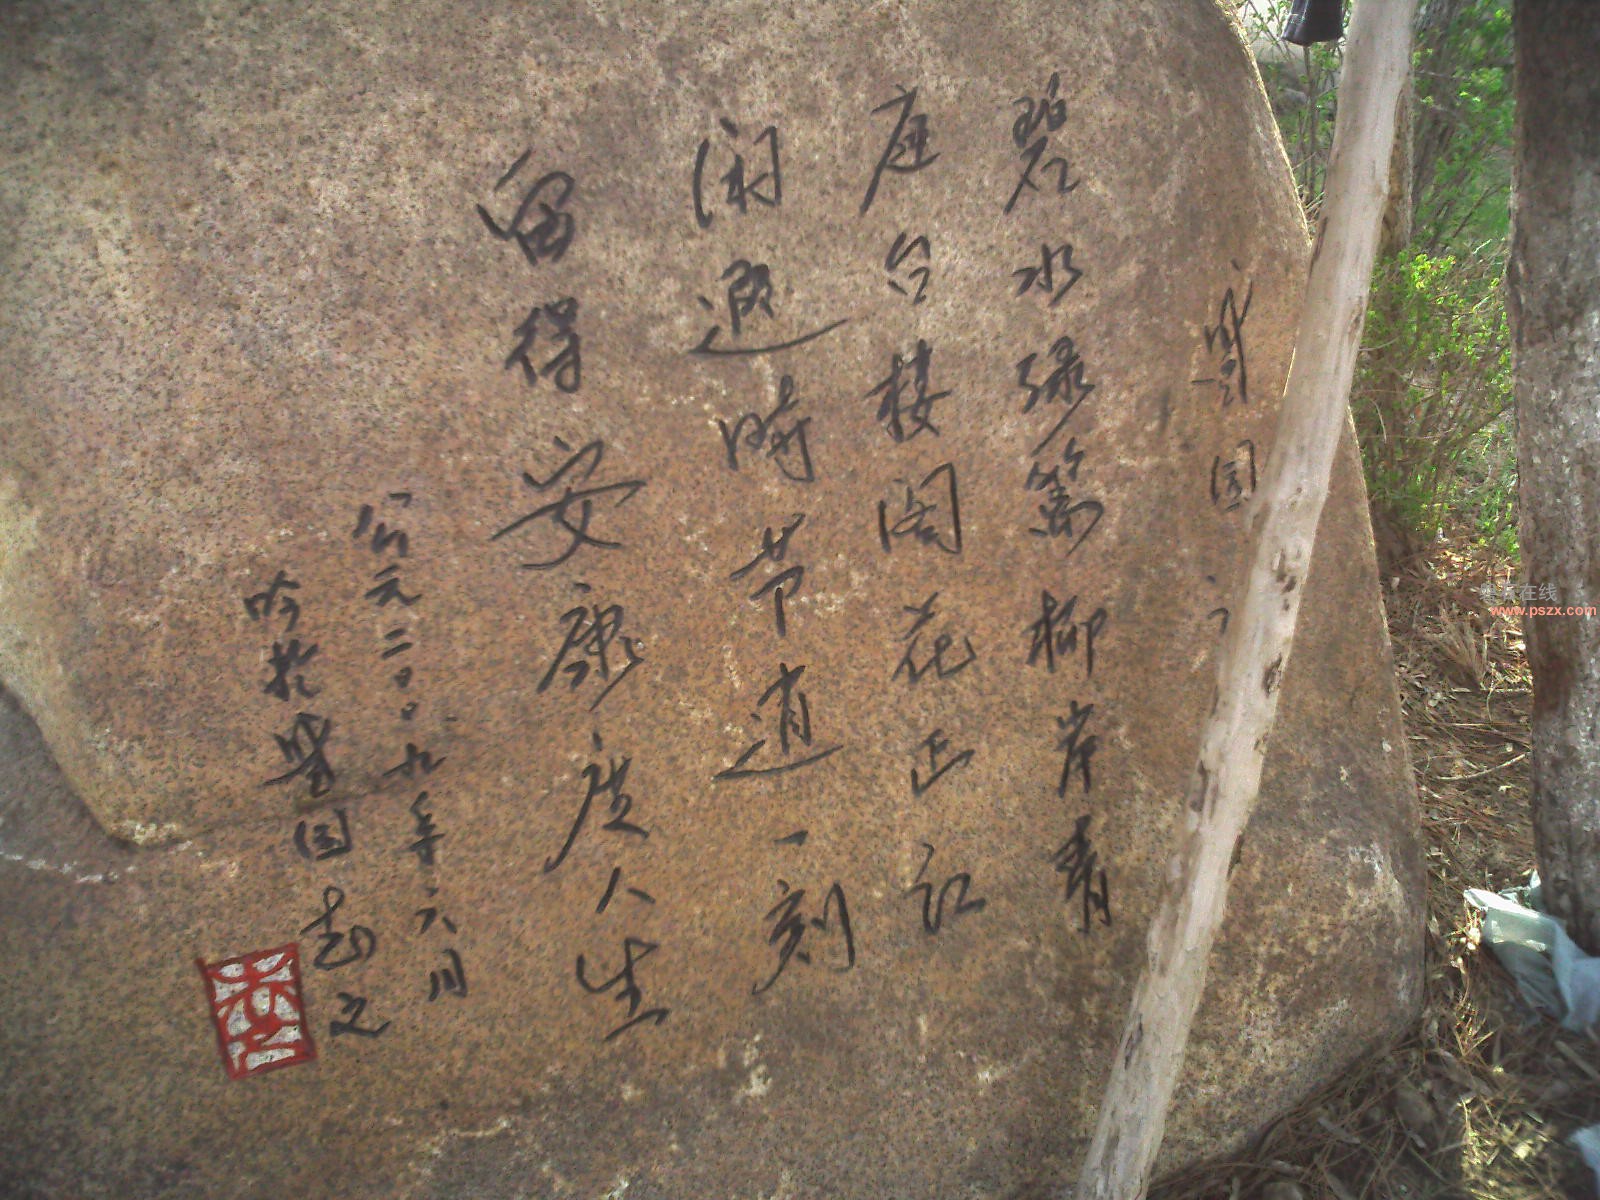 园
碧水绿篱柳岸青
庭台楼阁花正红
闲遐时节逍一刻
留得安康度人生
公元二〇〇九年六月
吟於园志之
在线
www.pszx.com